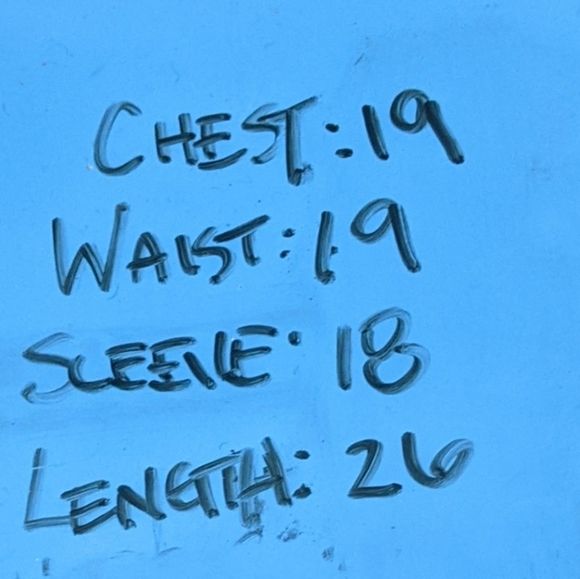 CHEST: 19
WAIST: 19
SLEEVE: 18
LENGTH: 26